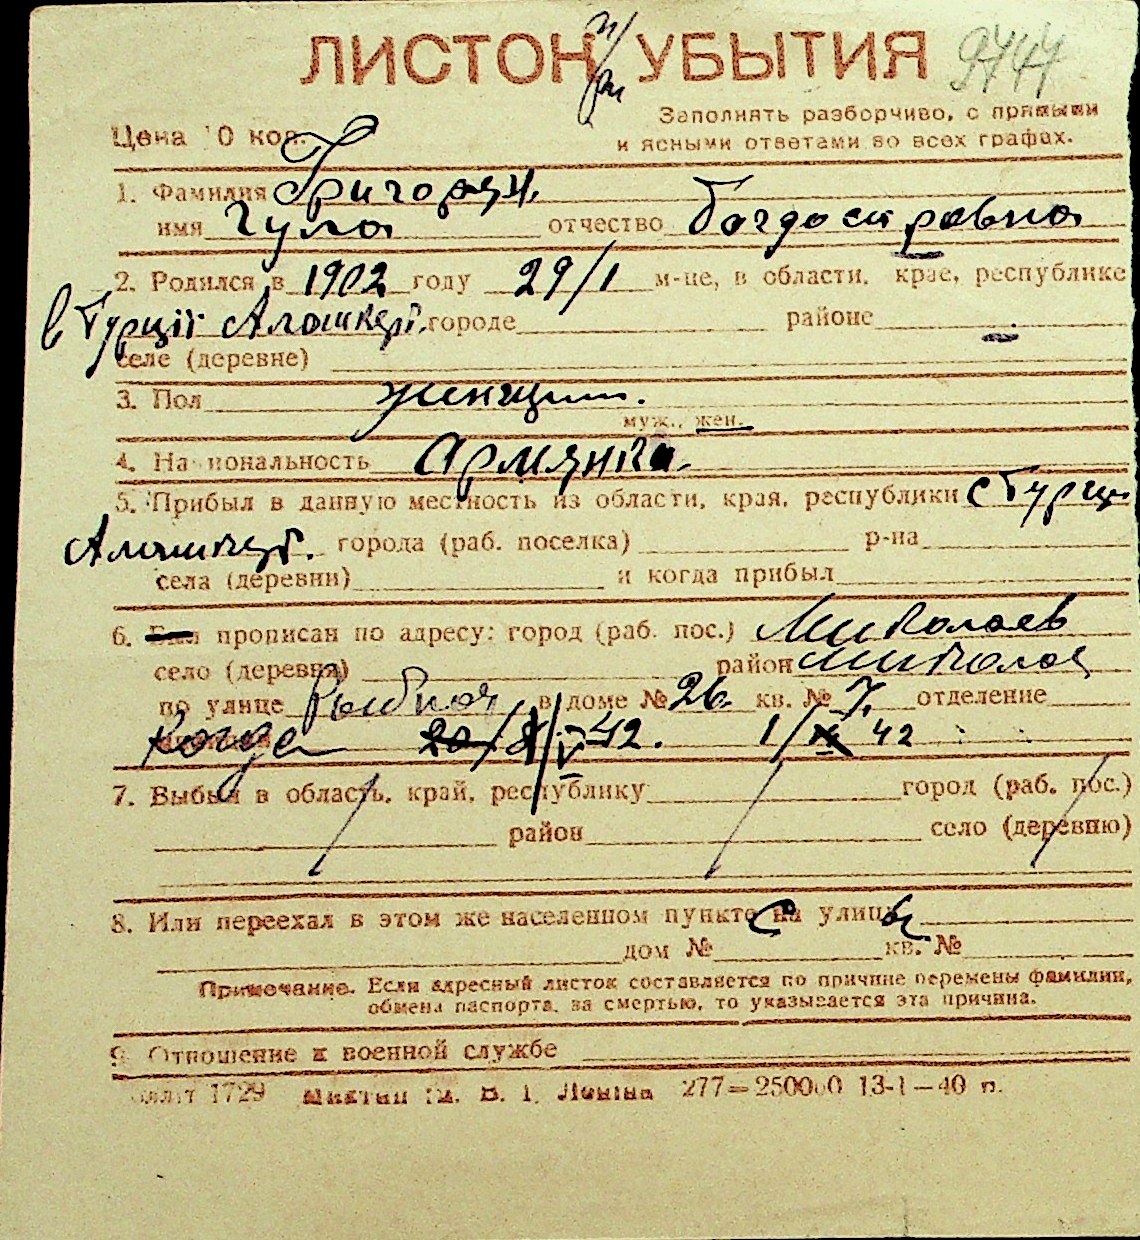 ЛИСТОК УБЫТИЯ 9747
Заполнять разборчиво, с прямыми
Цена 10 коп. и ясными ответами во всех графах.
1. Фамилия Григорян.
имя Гула отчество Багдасаровна
2. Родился в 1902 году 29/1 м-це, в области, крае, республике
в Турції Алашкерт. городе районе
селе (деревне)
3. Пол женщин.
муж., жен.
4. Национальность Армянка.
5. Прибыл в данную местность из области, края, республики с Турци
Алашкерт. города (раб. поселка) р-на
села (деревни) и когда прибыл
6. Был прописан по адресу: город (раб. пос.) Миколаев
село (деревня) район Миколаев
по улице Рыбная в доме № 26 кв. № 7. отделение
когда V 42. 1/ 42
7. Выбыл в область, край, республику город (раб. пос.)
район село (деревню)
8. Или переехал в этом же населенном пункте с на улицы
дом № кв. №
Примечание. Если адресный листок составляется по причине перемены фамилии,
обмена паспорта, за смертью, то указывается эта причина.
9. Отношение к военной службе
1729 им. В. І. Леніна 277—250000 13-1—40 п.